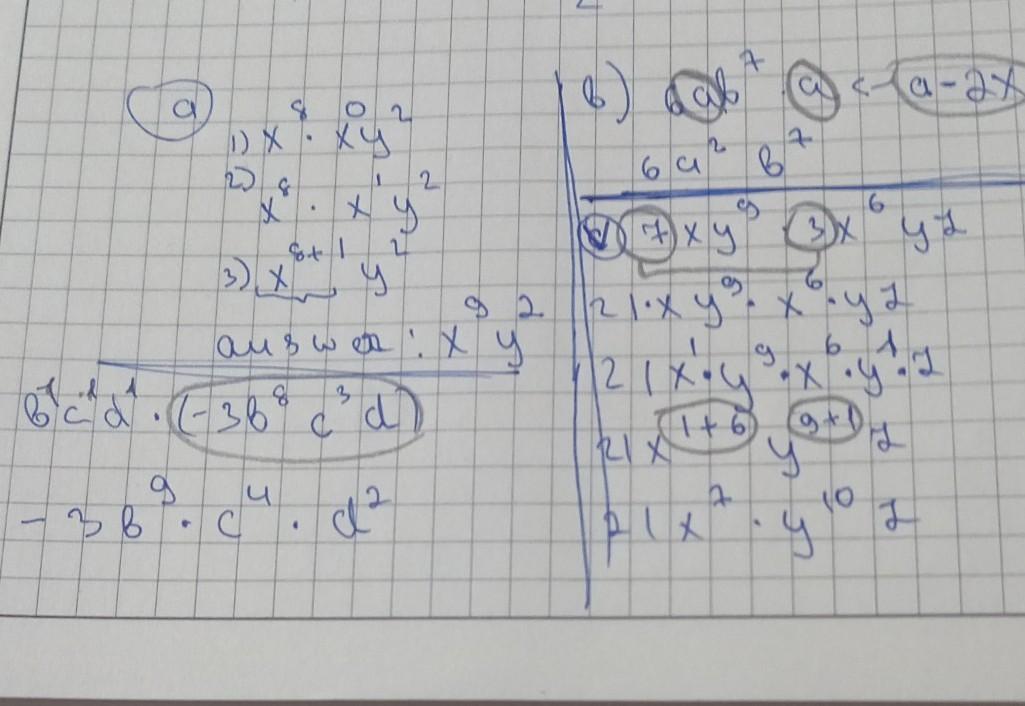 a
1) x⁸ · x⁰y²
2) x⁸ · x¹ y²
3) x⁸⁺¹ y²
answer : x⁹ y²
b¹c¹d¹ · (-3b⁸ c³ d)
- 3b⁹ · c⁴ · d²
b) 6ab⁷ a <- a-2x
6a² b⁷
7xy⁹ 3x⁶ yz
21·xy⁹ · x⁶ · yz
21x¹·y⁹·x⁶·y¹·z
21x¹⁺⁶ y⁹⁺¹ z
21x⁷ · y¹⁰ z